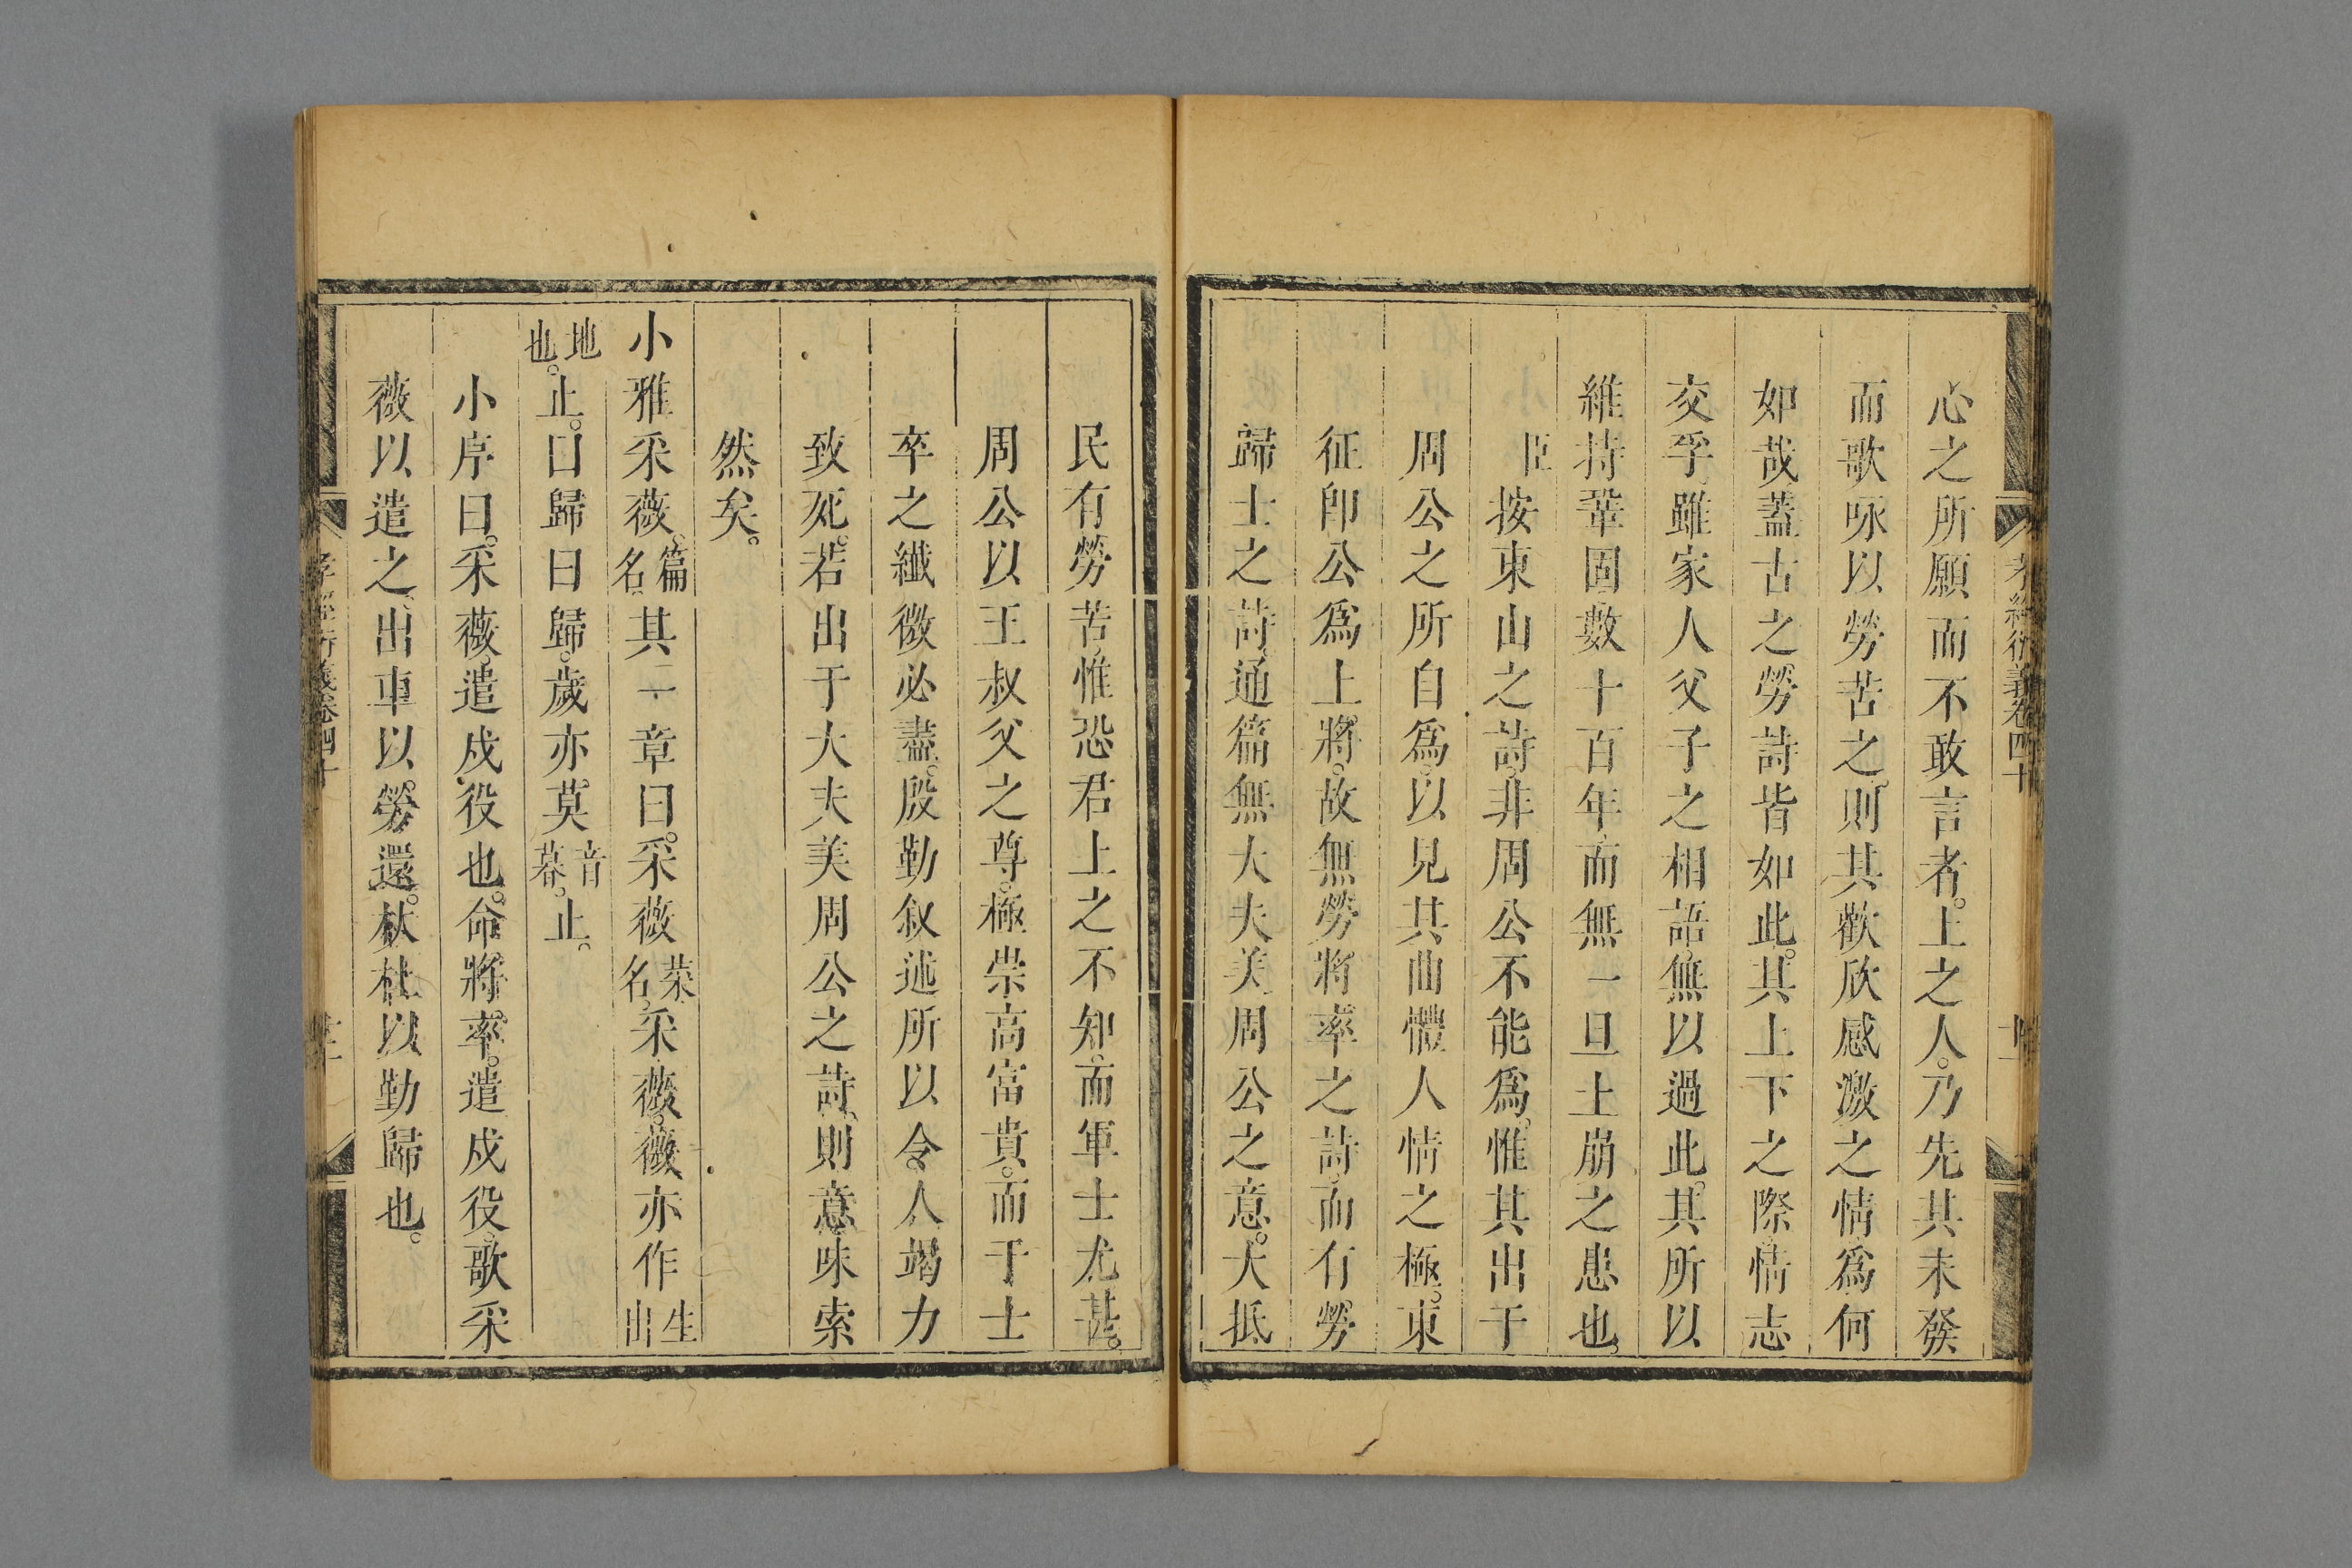 孝經衍義卷四十
心之所願而不敢言者。上之人。乃先其未發
而歌咏以勞苦之。則其歡欣感激之情爲何
如哉蓋古之勞詩皆如此。其上下之際情志
交孚雖家人父子之相語無以過此。其所以
維持鞏固數十百年而無一旦土崩之患也
臣按東山之詩。非周公不能爲。惟其出于
周公之所自爲。以見其曲體人情之極。東
征卽公爲上將。故無勞將率之詩而有勞
歸士之詩。通篇無大夫美周公之意。大抵
民有勞苦惟恐君上之不知。而軍士尤甚。
周公以王叔父之尊。極崇高富貴。而于士
卒之纖微必盡。殷勤叙述所以令人竭力
致死。若出于大夫美周公之詩則意味索
然矣。
小雅采薇。篇名。其一章曰。采薇菜名。采薇。薇亦作生出
地也。止。曰歸曰歸。歲亦莫音暮。止。
小序曰。采薇。遣戍役也。命將率。遣戍役歌采
薇以遣之。出車以勞還。杕杜以勤歸也。
孝經衍義卷四十